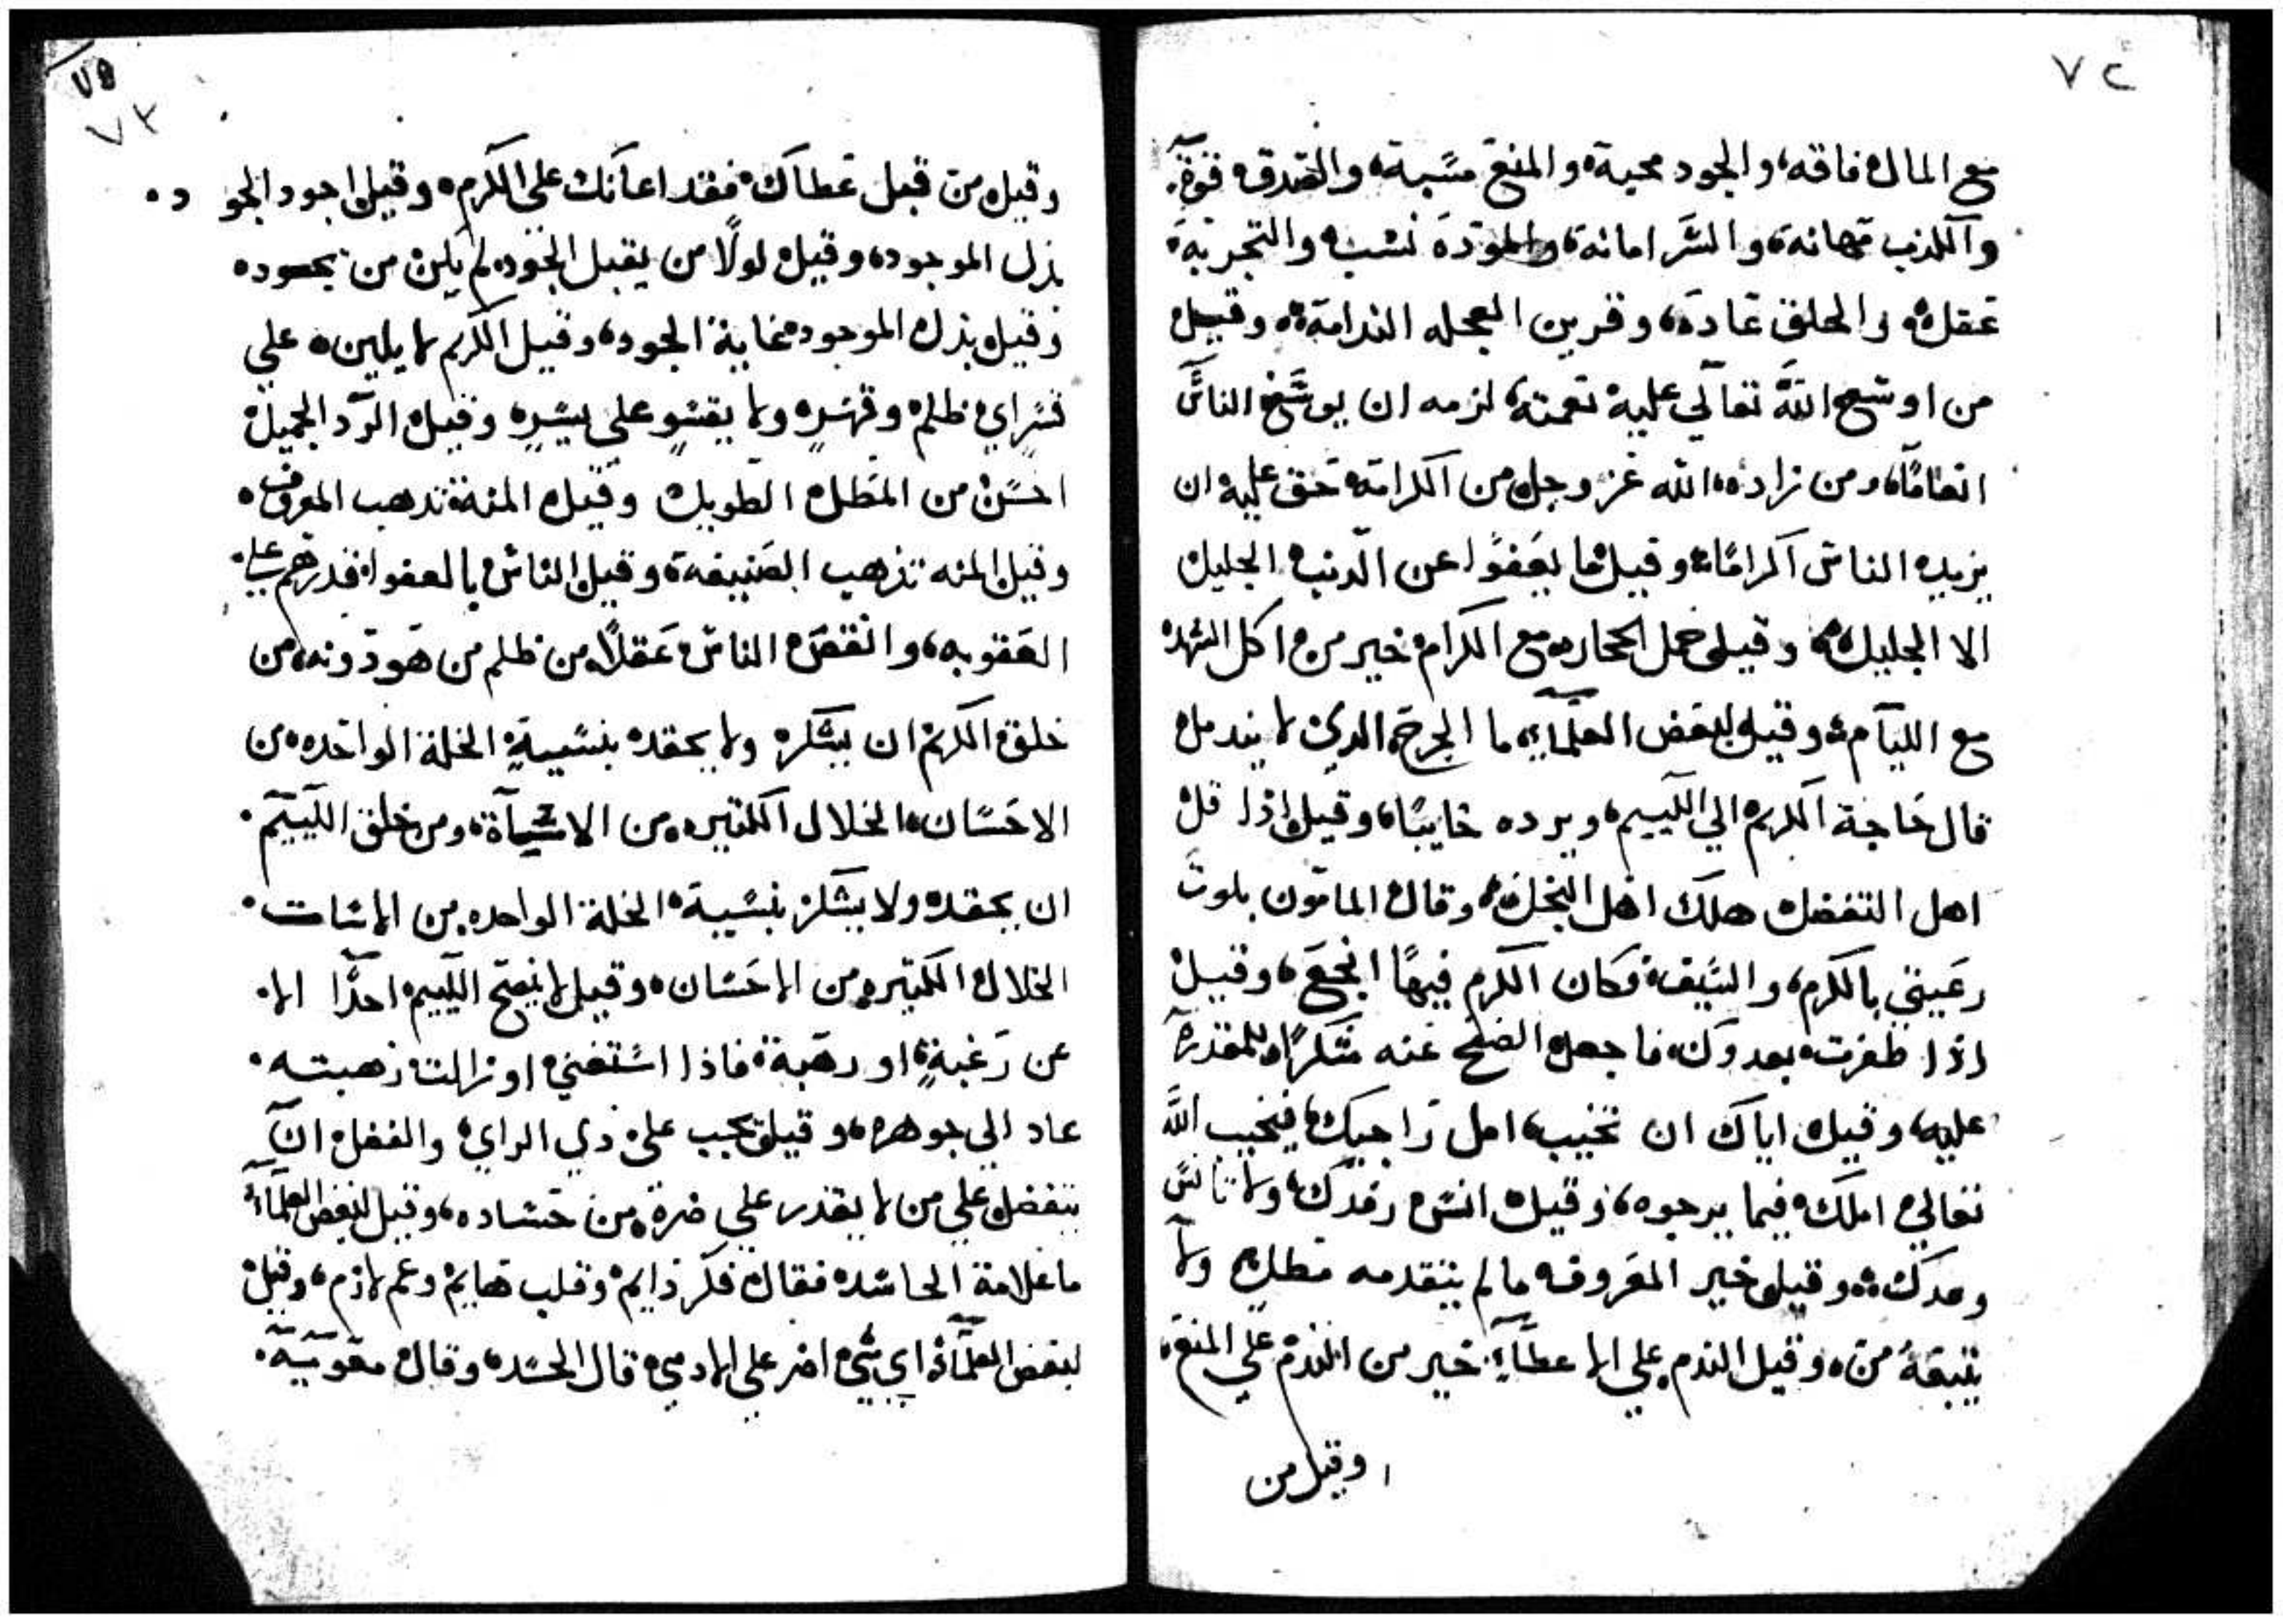 ٧٢
مع المال فاقه، والجود محبة، والمنع مسبة، والصدق قوة،
والكذب مهانة، والسر امانة، والمودة نسب، والتجربة
عقل، والخلق عادة، وقرين العجله الندامة، وقيل
من اوسع الله تعالي عليه نعمته، لزمه ان يوسع الناس
انعامًا، ومن زاده الله عز وجل من الكرامة حق عليه ان
يزيد الناس اكرامًا، وقيل ما يعفوا عن الذنب الجليل
الا الجليل، وقيل حمل الحجاره مع الكرام خير من اكل الشهد
مع الليآم، وقيل لبعض العلمآء، ما الجرح الذي لا يندمل
قال حاجة الكريم الي اللييم، ويرده خايبًا، وقيل اذا قل
اهل التفضل هلك اهل التجمل، وقال المامون بلوت
رعيتي بالكرم، والسيف، فكان الكرم فيها انجع، وقيل
اذا ظفرت بعدوك، فاجعل الصفح عنه شكرًا، للمقدرة
عليه، وقيل اياك ان تخيب، امل راجيك، فيخيب الله
تعالي املك، فيما يرجوه، وقيل انس رفدك، ولا تانس
وعدك، وقيل خير المعروف ما لم يتقدمه مطل، ولا
يتبعه من، وقيل الندم علي الاعطآء، خير من الندم علي المنع،
وقيل من
٧٥
٧٣
وقيل من قبل عطاك، فقد اعانك علي الكرم، وقيل اجود الجو د
بذل الموجود، وقيل لولا من يقبل الجود، لم يكن من يجوده
وقيل بذل الموجود غاية الجود، وقيل الكريم لا يلين علي
قسر اي ظلم وقهر، ولا يقسو علي يسر، وقيل الرد الجميل
احسن من المطل الطويل وقيل المنة تذهب المعروف
وقيل المنه تذهب الصنيعة، وقيل الناس بالعفو اقدرهم علي
العقوبه، وانقص الناس عقلًا من ظلم من هو دونه، من
خلق الكريم ان يشكر ولا يحقد بنسية الخلة الواحده من
الاحسان، الخلال الكثيره من الاسيآة، ومن خلق اللييم
ان يحقد ولا يشكر بنسية، الخلة الواحده من الاسات
الخلال الكثيره من الاحسان، وقيل لا ينصح اللييم احدًا الا
عن رغبة، او رهبة، فاذا استغني او زالت رهبته
عاد الي جوهره، وقيل يجب علي ذي الراي، والفضل ان
يتفضل علي من لا يقدر علي ضرة، من حساده، وقيل لبعض العلمآء
ما علامة الحاسد، فقال فكر دايم، وقلب هايم، وغم لازم، وقيل
لبعض العلمآء اي شي اضر علي الادمي، قال الحسد، وقال معوية